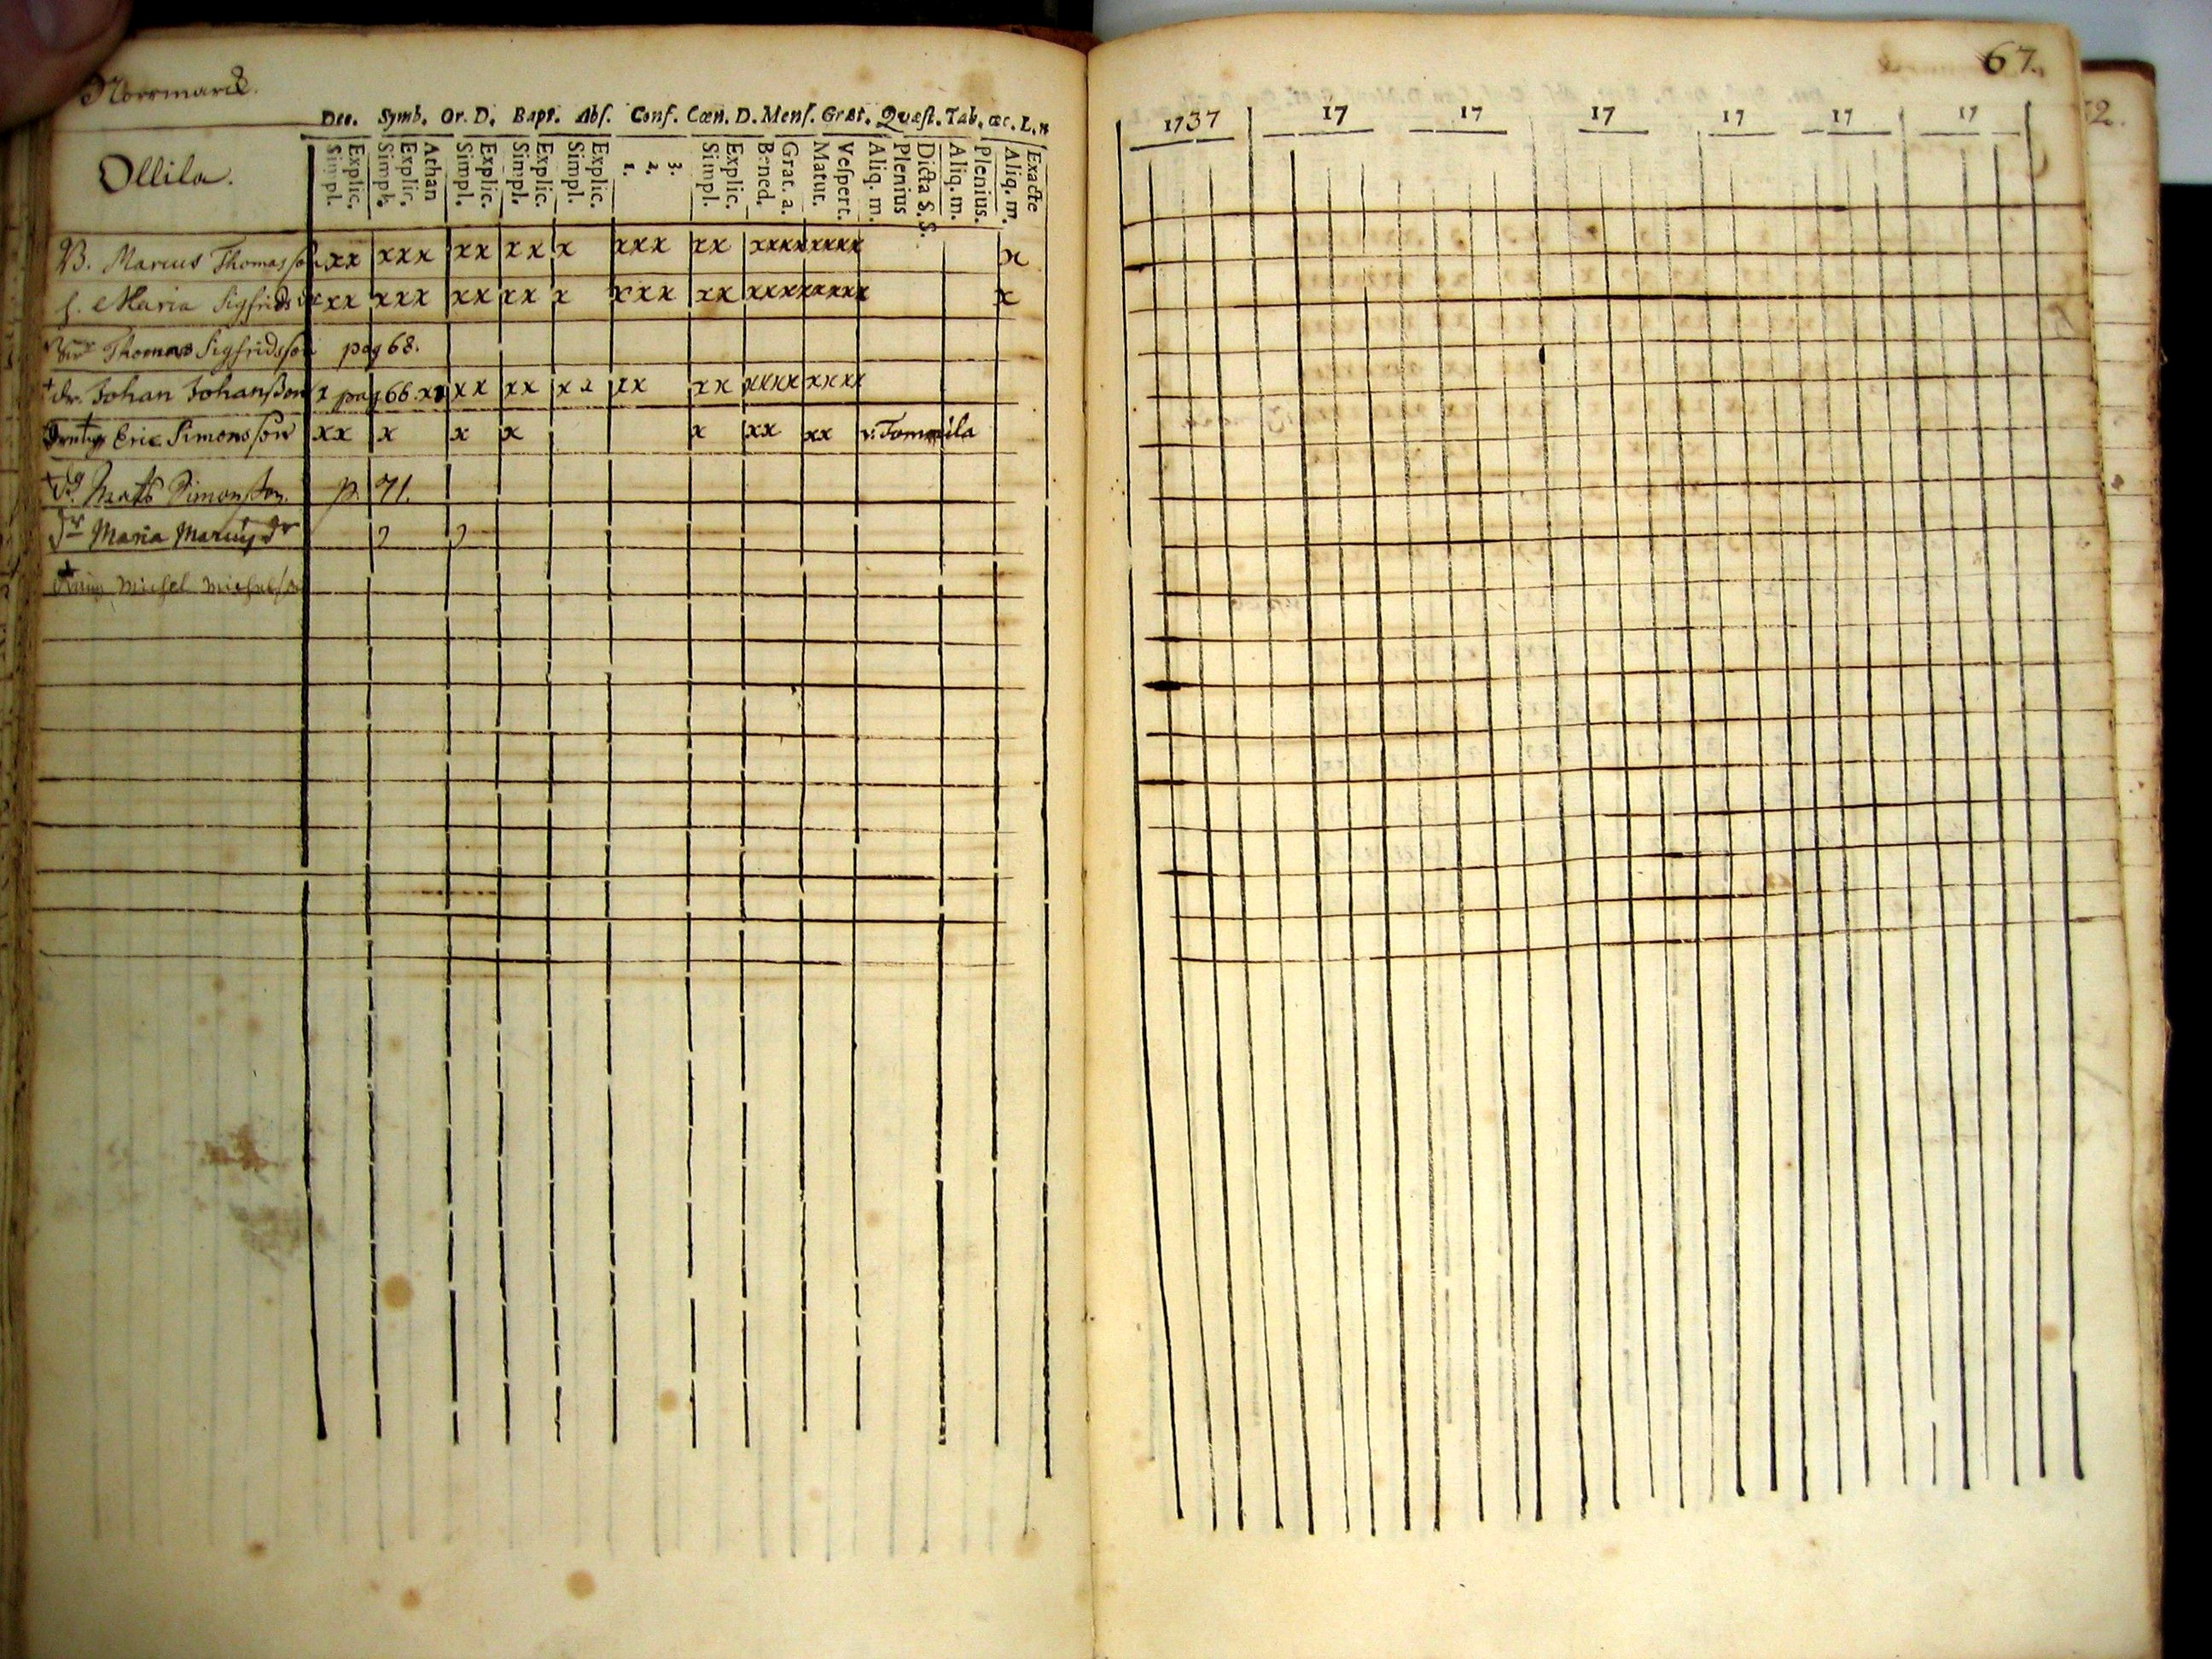 Norrmarck.
Ollila.
Dec. Symb. Or. D. Bapt. Abſ. Conſ. Cœn. D. Menſ. Grat. Quæſt. Tab. œc. L. n
Simpl. Explic. Simpl. Explic. Athan Simpl. Explic. Simpl. Explic. Simpl. Explic. 1. 2. 3. Simpl. Explic. Bened. Grat. a. Matut. Veſpert. Aliq. m. Plenius Dicta S. S. Aliq. m. Plenius. Aliq. m. Exacte
B. Marcus Thomasſon xx xxx xx xx x xxx xx xxxx xxxx x
h. Maria Sigfrids dr xx xxx xx xx x xxx xx xxxx xxxx x
Thomas Sigfridsſon pag 68.
+ dr. Johan Johanſson x pag 66. xx xx xx xx xx xx xxxx xxxx
Eric Simonsſon xx x x x x xx xx v. Tommila
+ Mats Simonsſon. p. 71.
Maria Marcus dr
Michel Michelsſon
67.
1737 17 17 17 17 17 17
2.